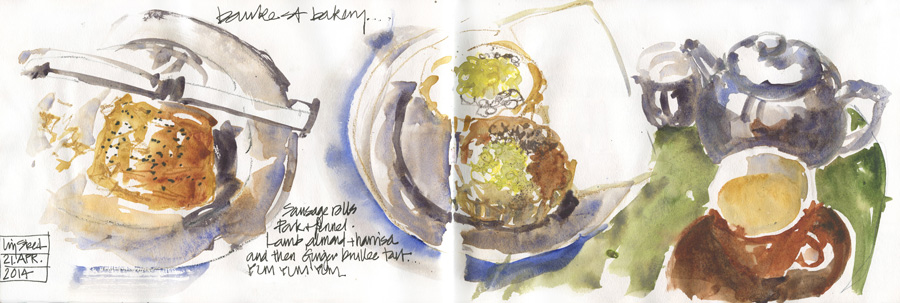 bourke st bakery...
Sausage rolls
Pork + fennel.
Lamb almond + harrisa
and then Ginger brullee tart...
YUM YUM YUM
Liz Steel
21 APR.
2014